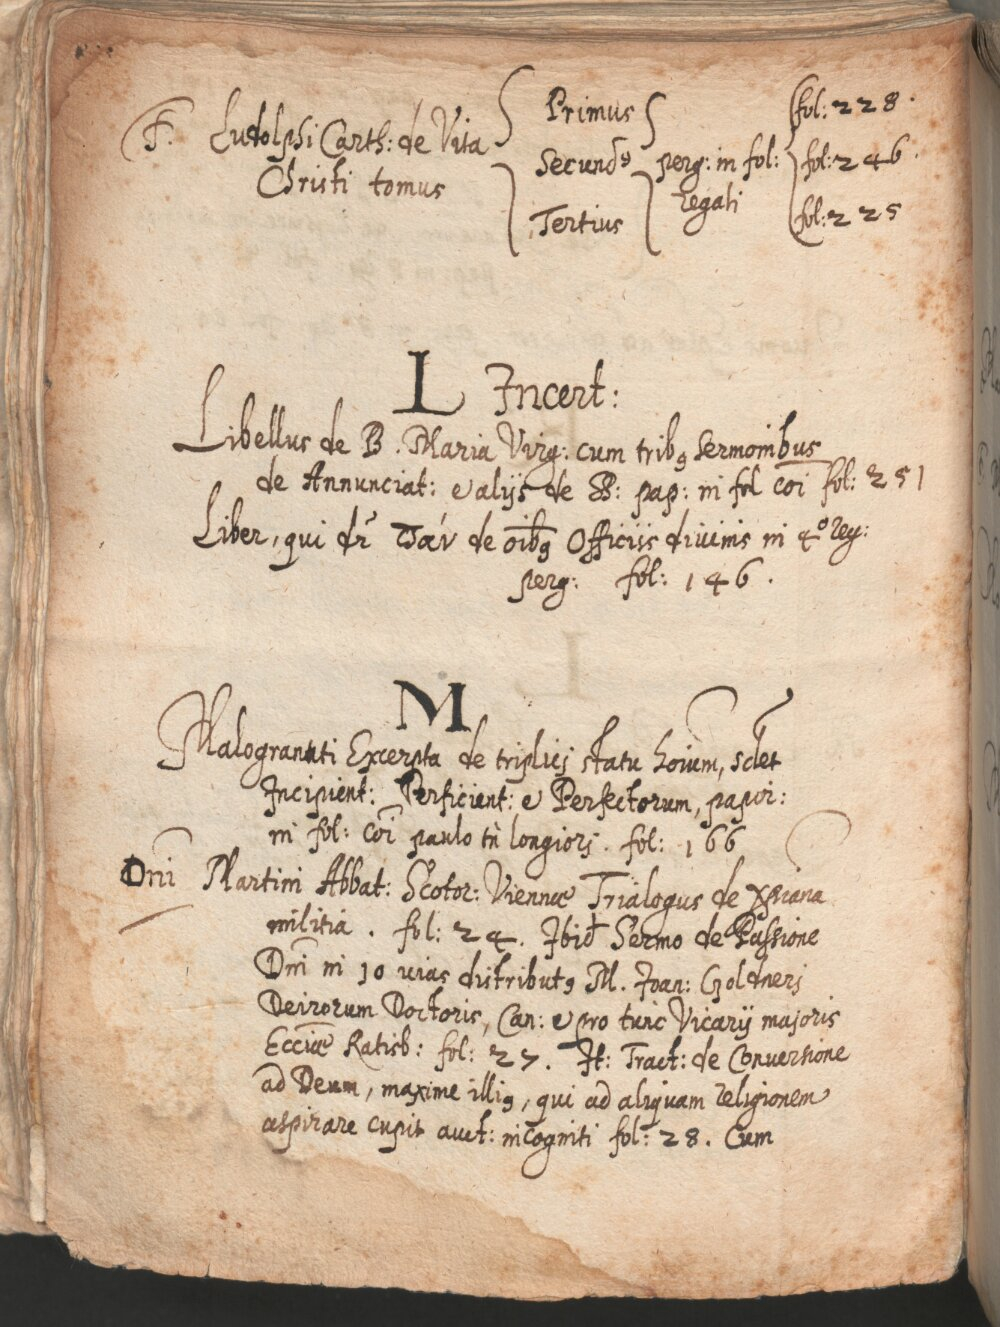 F. Ludolphi Carth: de Vita
Christi tomus
Primus
Secundꝰ perg: in fol:
Tertius regali
fol: 228.
fol: 246.
fol: 225
L Incert:
Libellus de B. Maria Virg: cum tribꝰ Sermonibus
de Annunciat: e alijs de SS: pap: in fol coi fol: 251
Liber, qui dr̄ πᾶν de oibꝰ Officiis diuinis in 4º reg:
perg: fol: 146.
M
Malogranati Excerpta de triplici statu hoium, sclet
Incipient: Perficient: e Perfectorum, papir:
in fol: coi paulo tn longiorj. fol: 166
Dni Martini Abbat: Scotor: Viennæ Trialogus de Xpiana
militia. fol: 24. Ibid Sermo de Passione
Dni in 10 uias distributꝰ M. Joan: Goldnerj
Decretorum Doctoris, Can: e pro tunc Vicarij majoris
Ecciæ Ratisb: fol: 27. It: Tract: de Conuersione
ad Deum, maxime illiꝰ, qui ad aliquam religionem
aspirare cupit auct: incogniti fol: 28. Cum